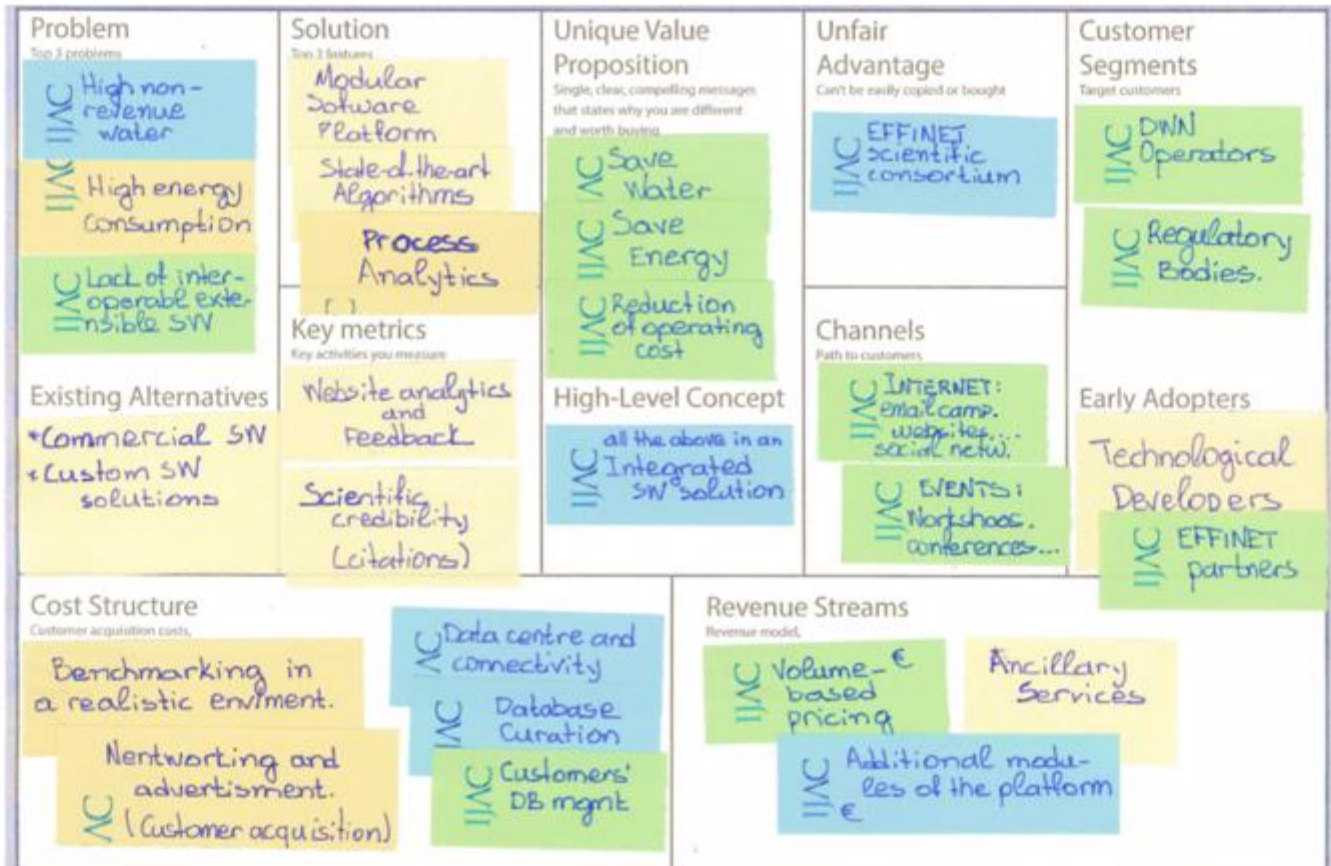 Problem
Top 3 problems
IJAC
High non-
revenue
water
IJAC
High energy
consumption
IJAC
Lack of inter-
operable exte-
nsible SW
Existing Alternatives
*Commercial SW
*Custom SW
solutions
Solution
Top 3 features
Modular
Sotware
Platform
State-of-the-art
Algorithms
Process
Analytics
Key metrics
Key activities you measure
Website analytics
and
Feedback
Scientific
credibility
(citations)
Unique Value
Proposition
Single, clear, compelling messages
that states why you are different
and worth buying
AC
Save
Water
IJAC
Save
Energy
IJAC
Reduction
of operating
cost
High-Level Concept
IJAC
all the above in an
Integrated
SW solution
Unfair
Advantage
Can't be easily copied or bought
IJAC
EFFINET
scientific
consortium
Channels
Path to customers
IJAC
INTERNET:
email camp.
websites...
social netw.
IJAC
EVENTS:
Workshops.
conferences...
Customer
Segments
Target customers
IJAC
DWN
Operators
IJAC
Regulatory
Bodies.
Early Adopters
Technological
Developers
IJAC
EFFINET
partners
Cost Structure
Customer acquisition costs,
Benchmarking in
a realistic enviment.
Nentworting and
advertisment.
AC
(Customer acquisition)
AC
Data centre and
connectivity
IJAC
Database
Curation
IJAC
Customers'
DB mgmt
Revenue Streams
Revenue model,
IJAC
Volume- €
based
pricing
Ancillary
Services
IJAC
Additional modu-
les of the platform
€